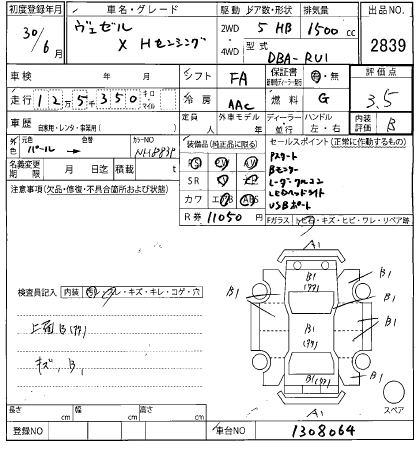 初度登録年月 車名・グレード 駆動 ドア数・形状 排気量 出品NO
30/6月 ヴェゼル X Hセンシング 2WD 4WD 5 HB 1500cc 2839
型式 DBA-RU1
車検 年 月 シフト FA 保証書 有・無 評価点
走行 12万5千350 キロ マイル 冷房 AAC 燃料 G 3.5
車歴 自家用・レンタ・事業用( ) 定員 人 外車モデル 年 ディーラー・並行 ハンドル 左・右 内装 B
外色 元色 パール 色替 カラーNO NH883P
装備品(純正品に限る) セールスポイント(正常に作動するもの)
名義変更期限 月 日迄 積載 t
PS PW
SR
カワ エアB ABS
R券 11050
Pスタート
Bモニター
レーダークルコン
LEDヘッドライト
USBポート
注意事項(欠品・修復・不具合箇所および状態)
Fガラス トビ石・キズ・ヒビ・ワレ・リペア跡
検査員記入 内装 ヨゴレ・キズ・キレ・コゲ・穴
上面B(ｸｸ)
キズ, B1
A1
B1
B1(ｸｸ)
B1
B1
B1(ｸｸ)
B1
B1
B1(ｸｸ)
A1
スペア
長さ cm 幅 cm 高さ cm
登録NO 車台NO 1308064